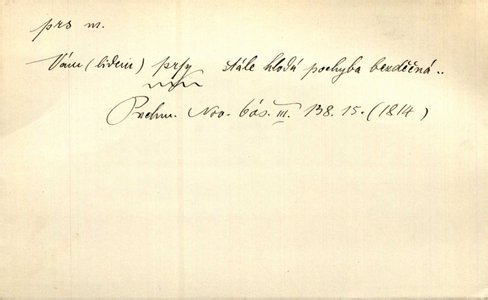 prs m.
Vám (lidem) prsy stále hlodá pochyba bezděčná..
Puchm. Nov. bás. III. 138. 15. (1814)